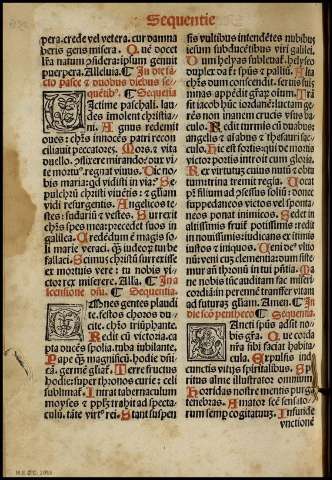 Sequentie
pera. crede vel vetera. cur damna
beris gens misera. Que docet
Alleluia. In die sa
cto pasce et duobus diebus se
Sequentia
Victime paschali. lau
des imolent christia
ni. Agnus redemit
oves: christus innocens patri recon
ciliavit peccatores. Mors et vita
duello. conflixere mirando: dux vi
te mortuus. regnat vivus. Dic no
bis maria: quid vidisti in via? Se
pulchrum christi viventis: et gloriam
vidi resurgentis. Angelicos te
stes: sudarium et vestes. Surrexit
christus spes mea: precedet suos in
galilea. Credendum est magis so
li marie veraci. quam iudeorum turbe
fallaci. Scimus christum surrexisse
ex mortuis vere: tu nobis vi
ctor rex miserere. Alla. In a
scensione Sequentia.
Omnes gentes plaudi
te. festos choros du
cite. christo triumphante.
Redit cum victoria. ca
pta ducens spolia. turba iubilante.
Pape quam magnificum. hodie
germen Terre fructus
hodie: super thronos curie: celi
sublimat. Intrat tabernaculum
moyses et trahit ad specta
culum. Stant suspen
sis vultibus intendentes nubibus
iesum subducentibus viri galilei.
Dum helyas sublevat. helyseo
duplex datur: spiritus et pallium. Alta
christus dum conscendit. servis suis
minas appendit gratie donum. Tran
sit iacob hunc iordanem: luctam ge
rens non inanem crucis usus ba
culo. Redit turmis cum duabus
angelis et animabus et thesauri baiulo.
Hic est fortis: qui de mortis
victor portis introit cum gloria.
Rex virtutum: cuius nutu et obtu
tu trina tremit regia. Vocat
patrem filium ad consessus solium: donec
suppedaneos victos vel sponta
neos ponat inimicos. Sedet in
altissimis fruitur potissimis: redit
in novissimis: iudicans ex intimis
iustos et iniquos. Veni deus ulti
num: veni cum clementia: dum siste
mur ante thronum in tui presentia. Ma
ne nobis ut audiamus tuam miseri
cordiam in peremni transfer vitam
ad futuram gloriam. Amen. In
die pentheco. Sequentia.
Sancti spiritus adsit no
bis gratia. Que corda
nostra sibi faciat habita
cula. Expulsis inde
cunctis vitiis spiritalibus. Spi
ritus alme illustrator omnium.
Horridas nostre mentis purga
tenebras. Amator sancte sensato
rum semper cogitatuum. Infunde
unctionem